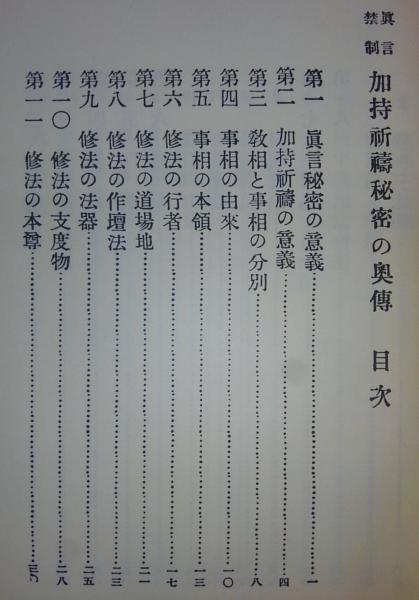 眞言
禁制
加持祈禱秘密の奧傳 目次
第一 眞言秘密の意義…………一
第二 加持祈禱の意義…………四
第三 敎相と事相の分別…………八
第四 事相の由來…………一〇
第五 事相の本領…………一三
第六 修法の行者…………一七
第七 修法の道場地…………二一
第八 修法の作壇法…………二三
第九 修法の法器…………二五
第一〇 修法の支度物…………二八
第一一 修法の本尊…………